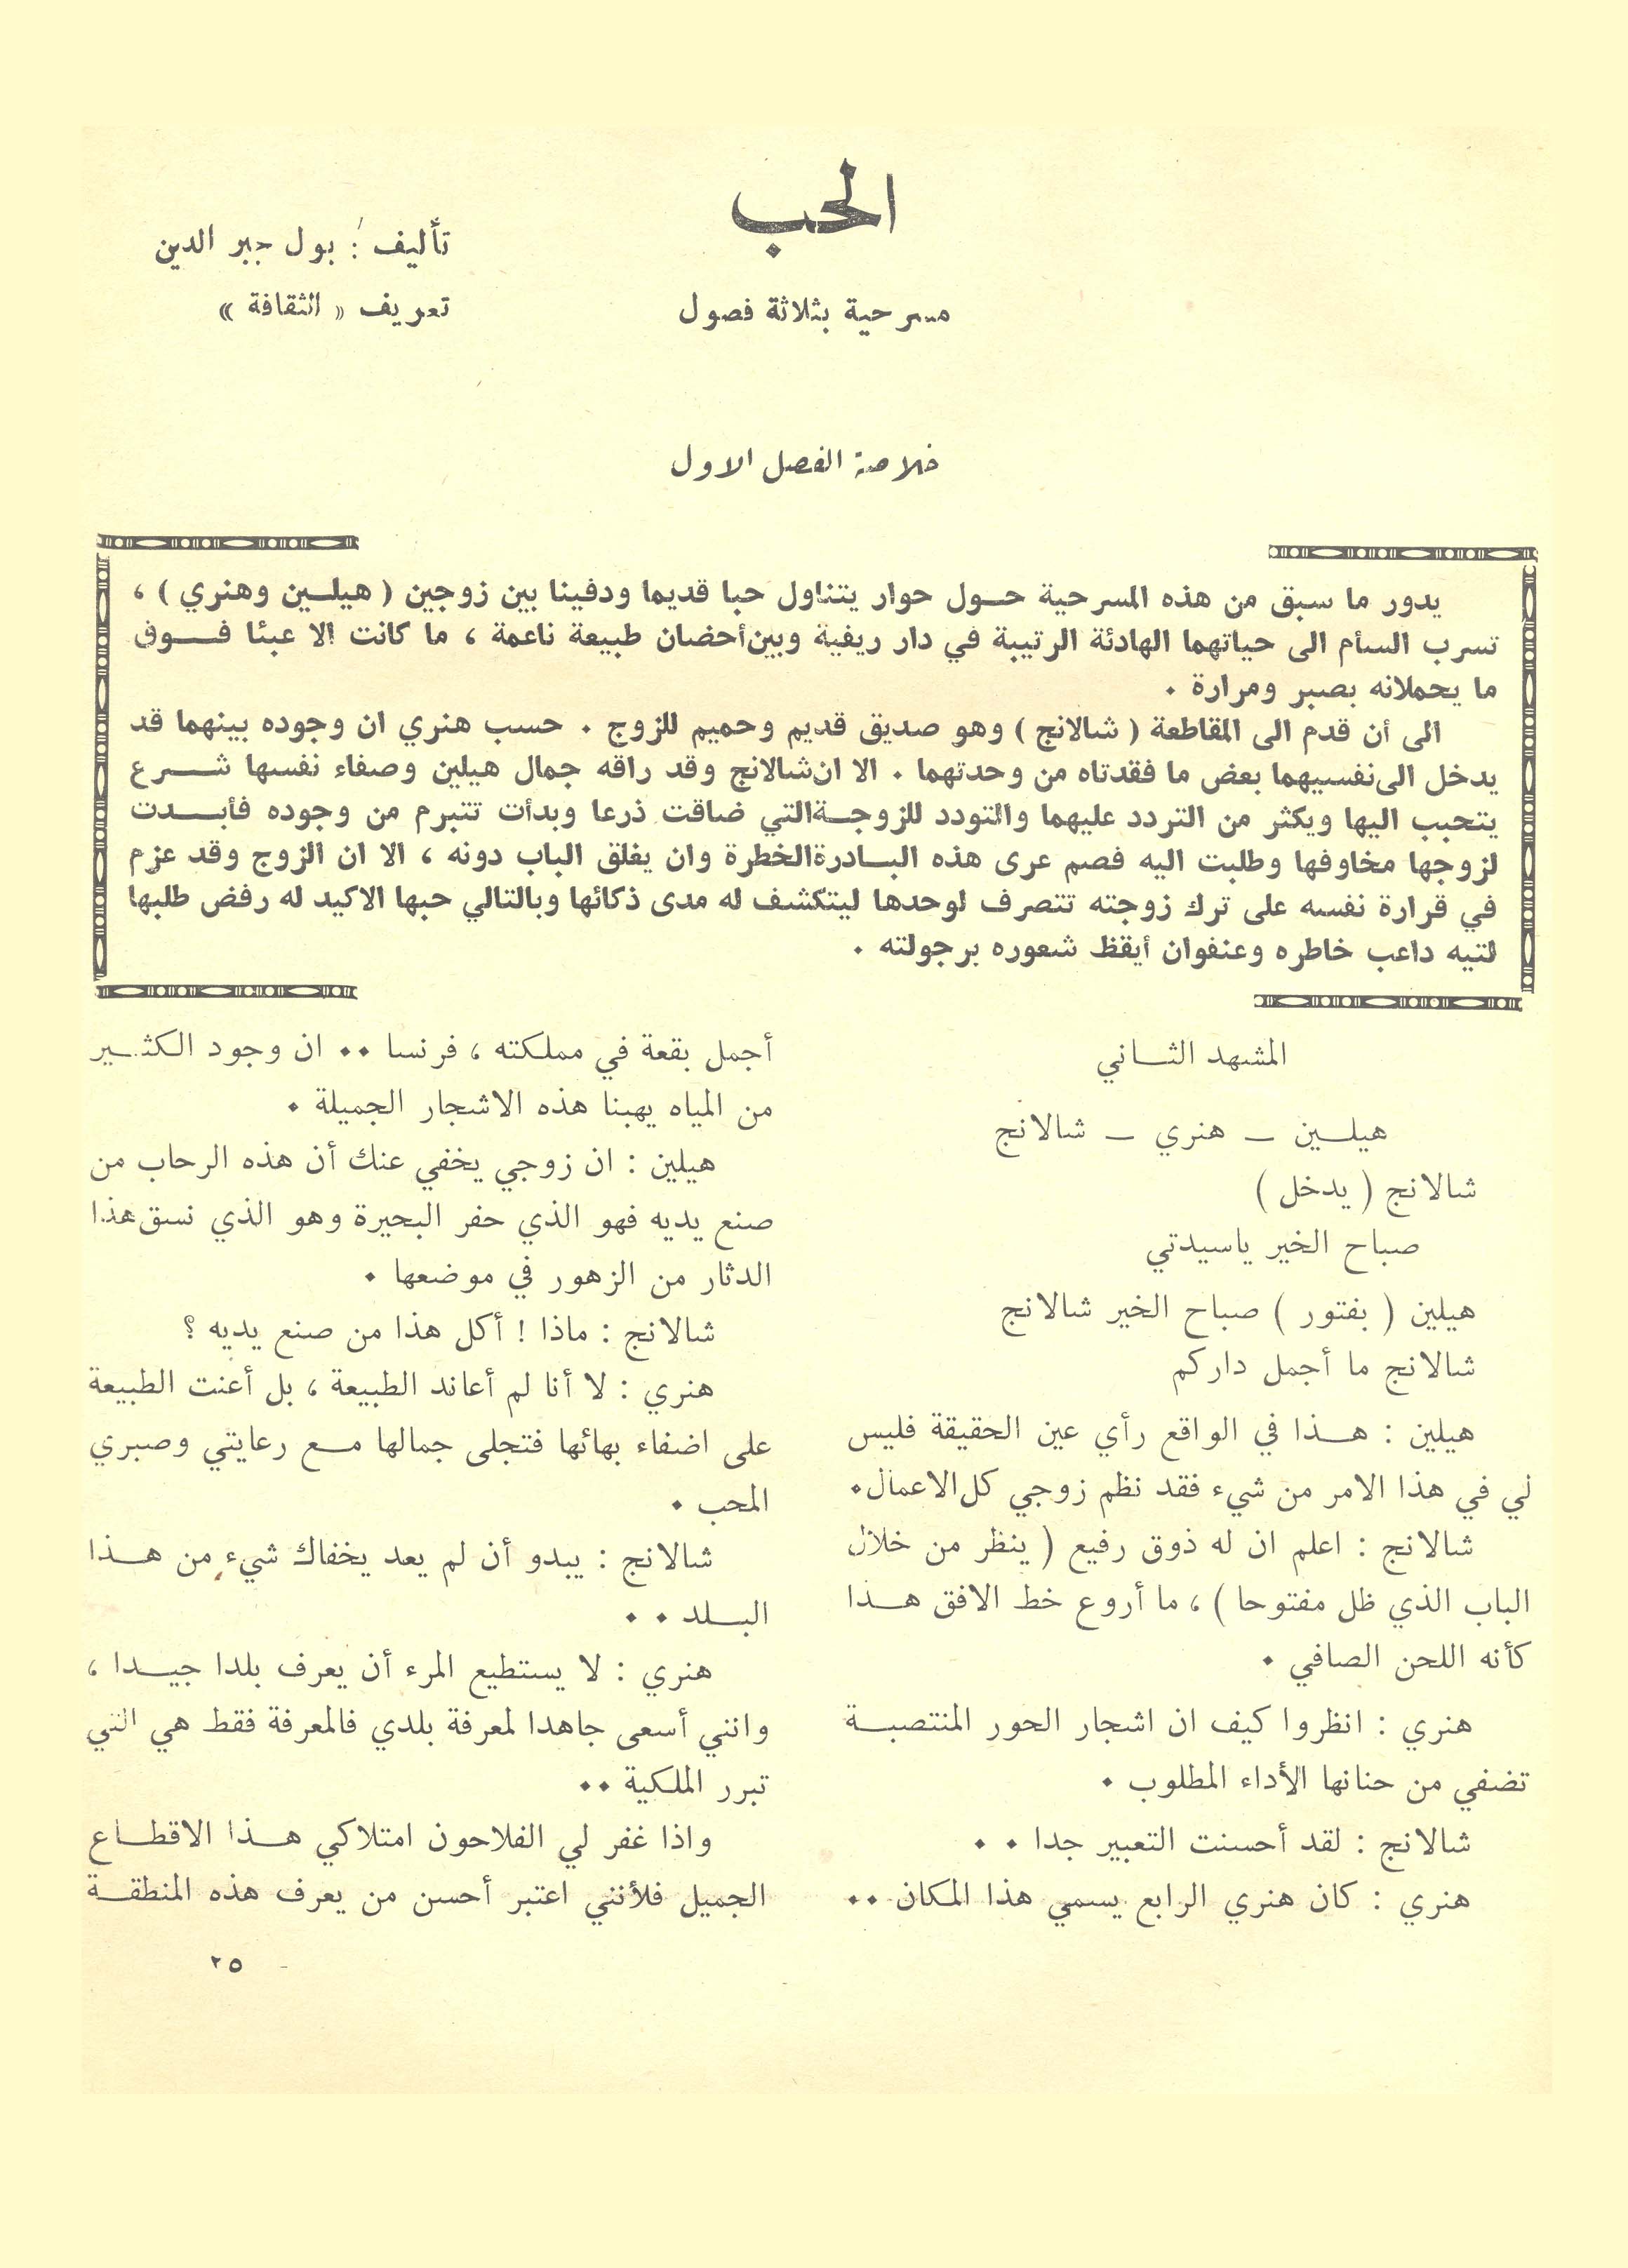 الحب
مسرحية بثلاثة فصول
تأليف : بول جبر الدين
تعريف « الثقافة »
خلاصة الفصل الاول
يدور ما سبق من هذه المسرحية حـول حوار يتناول حبا قديما ودفينا بين زوجين ( هيلـين وهنري ) ،
تسرب السأم الى حياتهما الهادئة الرتيبة في دار ريفية وبين أحضان طبيعة ناعمة ، ما كانت الا عبئا فـوق
ما يحملانه بصبر ومرارة .
الى أن قدم الى المقاطعة ( شالانج ) وهو صديق قديم وحميم للزوج . حسب هنري ان وجوده بينهما قد
يدخل الى نفسيهما بعض ما فقدتاه من وحدتهما . الا ان شالانج وقد راقه جمال هيلين وصفاء نفسها شـرع
يتحبب اليها ويكثر من التردد عليهما والتودد للزوجـة التي ضاقت ذرعا وبدأت تتبرم من وجوده فأبـدت
لزوجها مخاوفها وطلبت اليه فصم عرى هذه البـادرة الخطرة وان يغلق الباب دونه ، الا ان الزوج وقد عزم
في قرارة نفسه على ترك زوجته تتصرف لوحدها ليتكشف له مدى ذكائها وبالتالي حبها الاكيد له رفض طلبها
لتيه داعب خاطره وعنفوان أيقظ شعوره برجولته .
المشهد الثـاني
هيلـين – هنري – شالانج
شالانج ( يدخل )
صباح الخير ياسيدتي
هيلين ( بفتور ) صباح الخير شالانج
شالانج ما أجمل داركم
هيلين : هـذا في الواقع رأي عين الحقيقة فليس
لي في هذا الامر من شيء فقد نظم زوجي كل الاعمال .
شالانج : اعلم ان له ذوق رفيع ( ينظر من خلال
الباب الذي ظل مفتوحا ) ، ما أروع خط الافق هـذا
كأنه اللحن الصافي .
هنري : انظروا كيف ان اشجار الحور المنتصبـة
تضفي من حنانها الأداء المطلوب .
شالانج : لقد أحسنت التعبير جدا . .
هنري : كان هنري الرابع يسمي هذا المكان ..
أجمل بقعة في مملكته ، فرنسا .. ان وجود الكثـير
من المياه يهبنا هذه الاشجار الجميلة .
هيلين : ان زوجي يخفي عنك أن هذه الرحاب من
صنع يديه فهو الذي حفر البحيرة وهو الذي نسق هذا
الدثار من الزهور في موضعها .
شالانج : ماذا ! أكل هذا من صنع يديه ؟
هنري : لا أنا لم أعاند الطبيعة ، بل أعنت الطبيعة
على اضفاء بهائها فتجلى جمالها مـع رعايتي وصبري
المحب .
شالانج : يبدو أن لم يعد يخفاك شيء من هـذا
البـلد . .
هنري : لا يستطيع المرء أن يعرف بلدا جيـدا ،
وانني أسعى جاهدا لمعرفة بلدي فالمعرفة فقط هي التي
تبرر الملكية ..
واذا غفر لي الفلاحون امتلاكي هـذا الاقطـاع
الجميل فلأنني اعتبر أحسن من يعرف هذه المنطقـة
٢٥